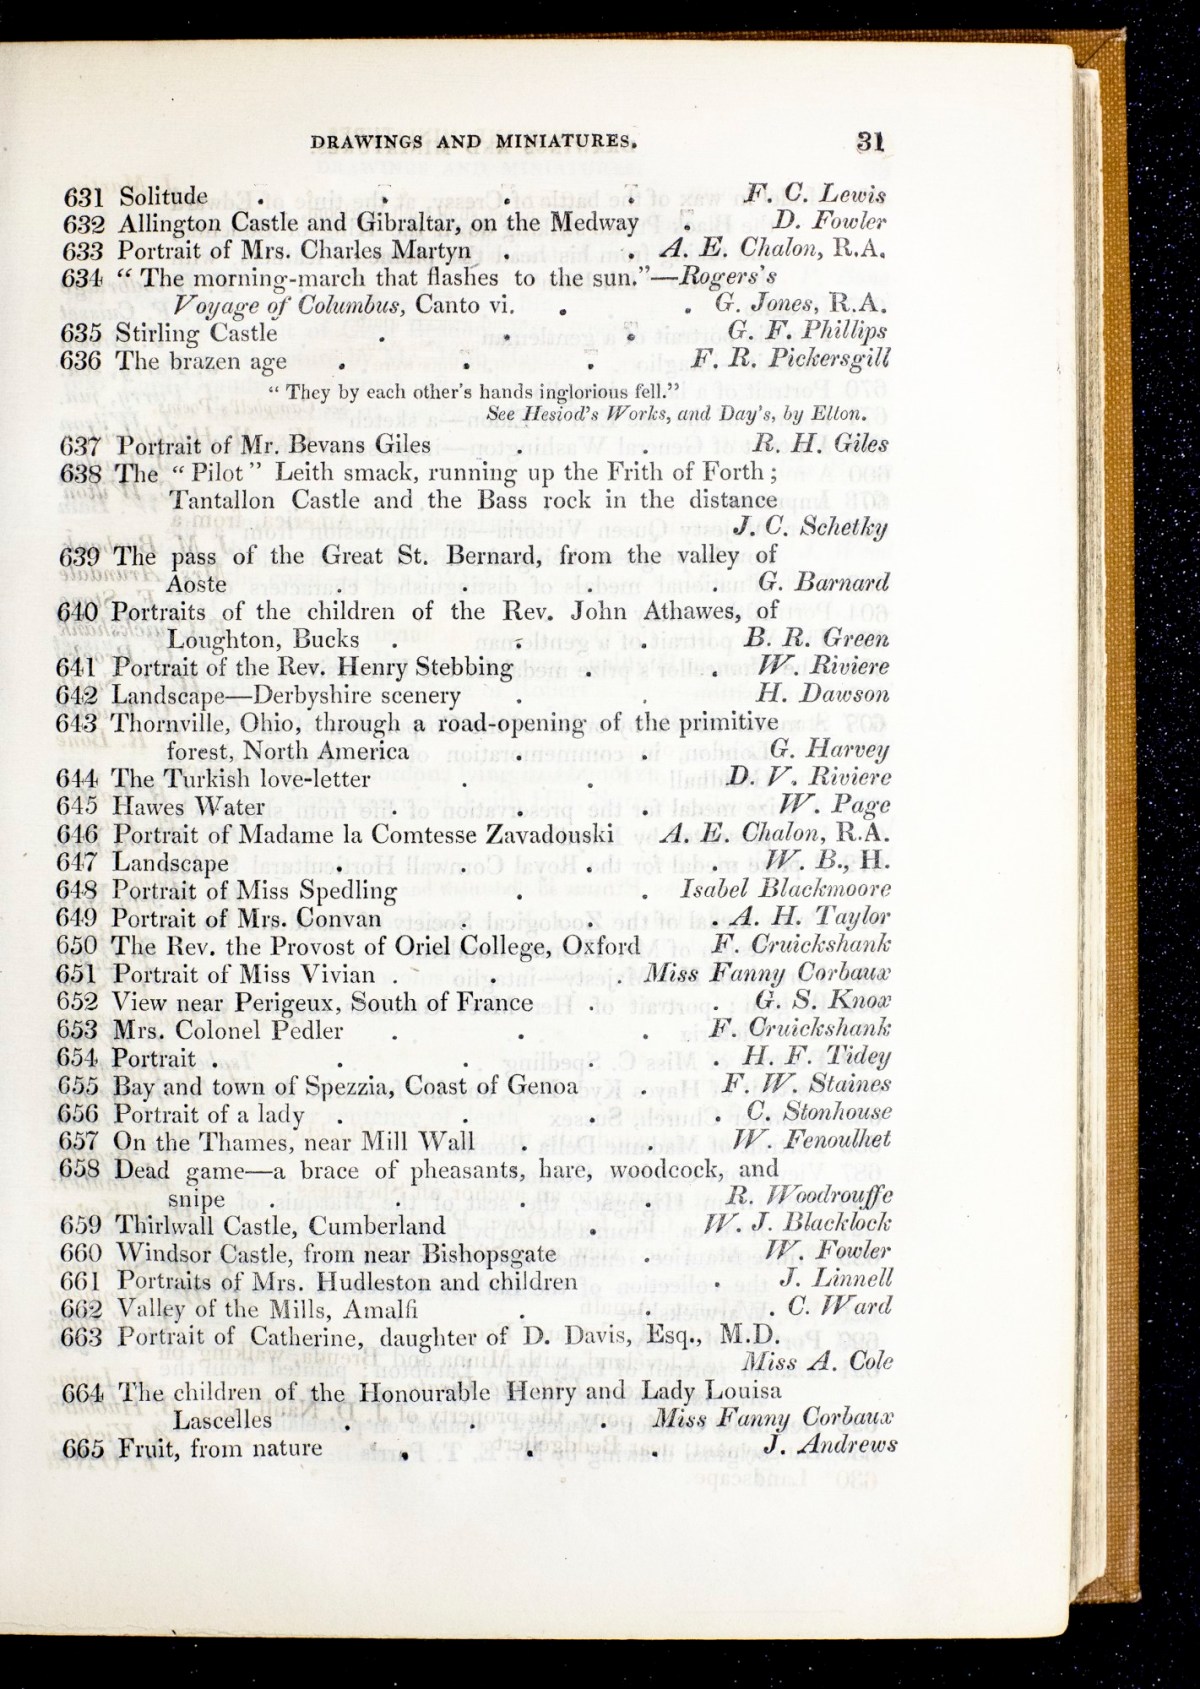 DRAWINGS AND MINIATURES. 31
631 Solitude . . . . F. C. Lewis
632 Allington Castle and Gibraltar, on the Medway . D. Fowler
633 Portrait of Mrs. Charles Martyn . . A. E. Chalon, R.A.
634 “ The morning-march that flashes to the sun.”—Rogers's
Voyage of Columbus, Canto vi. . . G. Jones, R.A.
635 Stirling Castle . . . G. F. Phillips
636 The brazen age . . . F. R. Pickersgill
“ They by each other's hands inglorious fell.”
See Hesiod's Works, and Day's, by Elton.
637 Portrait of Mr. Bevans Giles . . R. H. Giles
638 The “ Pilot ” Leith smack, running up the Frith of Forth ;
Tantallon Castle and the Bass rock in the distance
J. C. Schetky
639 The pass of the Great St. Bernard, from the valley of
Aoste . . . . G. Barnard
640 Portraits of the children of the Rev. John Athawes, of
Loughton, Bucks . . . B. R. Green
641 Portrait of the Rev. Henry Stebbing . . W. Riviere
642 Landscape—Derbyshire scenery . . H. Dawson
643 Thornville, Ohio, through a road-opening of the primitive
forest, North America . . G. Harvey
644 The Turkish love-letter . . D. V. Riviere
645 Hawes Water . . . W. Page
646 Portrait of Madame la Comtesse Zavadouski A. E. Chalon, R.A.
647 Landscape . . . . W. B., H.
648 Portrait of Miss Spedling . . Isabel Blackmoore
649 Portrait of Mrs. Convan . . . A. H. Taylor
650 The Rev. the Provost of Oriel College, Oxford F. Cruickshank
651 Portrait of Miss Vivian . . . Miss Fanny Corbaux
652 View near Perigeux, South of France . . G. S. Knox
653 Mrs. Colonel Pedler . . . F. Cruickshank
654 Portrait . . . . . H. F. Tidey
655 Bay and town of Spezzia, Coast of Genoa . F. W. Staines
656 Portrait of a lady . . . . C. Stonhouse
657 On the Thames, near Mill Wall . . W. Fenoulhet
658 Dead game—a brace of pheasants, hare, woodcock, and
snipe . . . . R. Woodrouffe
659 Thirlwall Castle, Cumberland . W. J. Blacklock
660 Windsor Castle, from near Bishopsgate . W. Fowler
661 Portraits of Mrs. Hudleston and children . J. Linnell
662 Valley of the Mills, Amalfi . . . C. Ward
663 Portrait of Catherine, daughter of D. Davis, Esq., M.D.
Miss A. Cole
664 The children of the Honourable Henry and Lady Louisa
Lascelles . . . Miss Fanny Corbaux
665 Fruit, from nature . . . J. Andrews